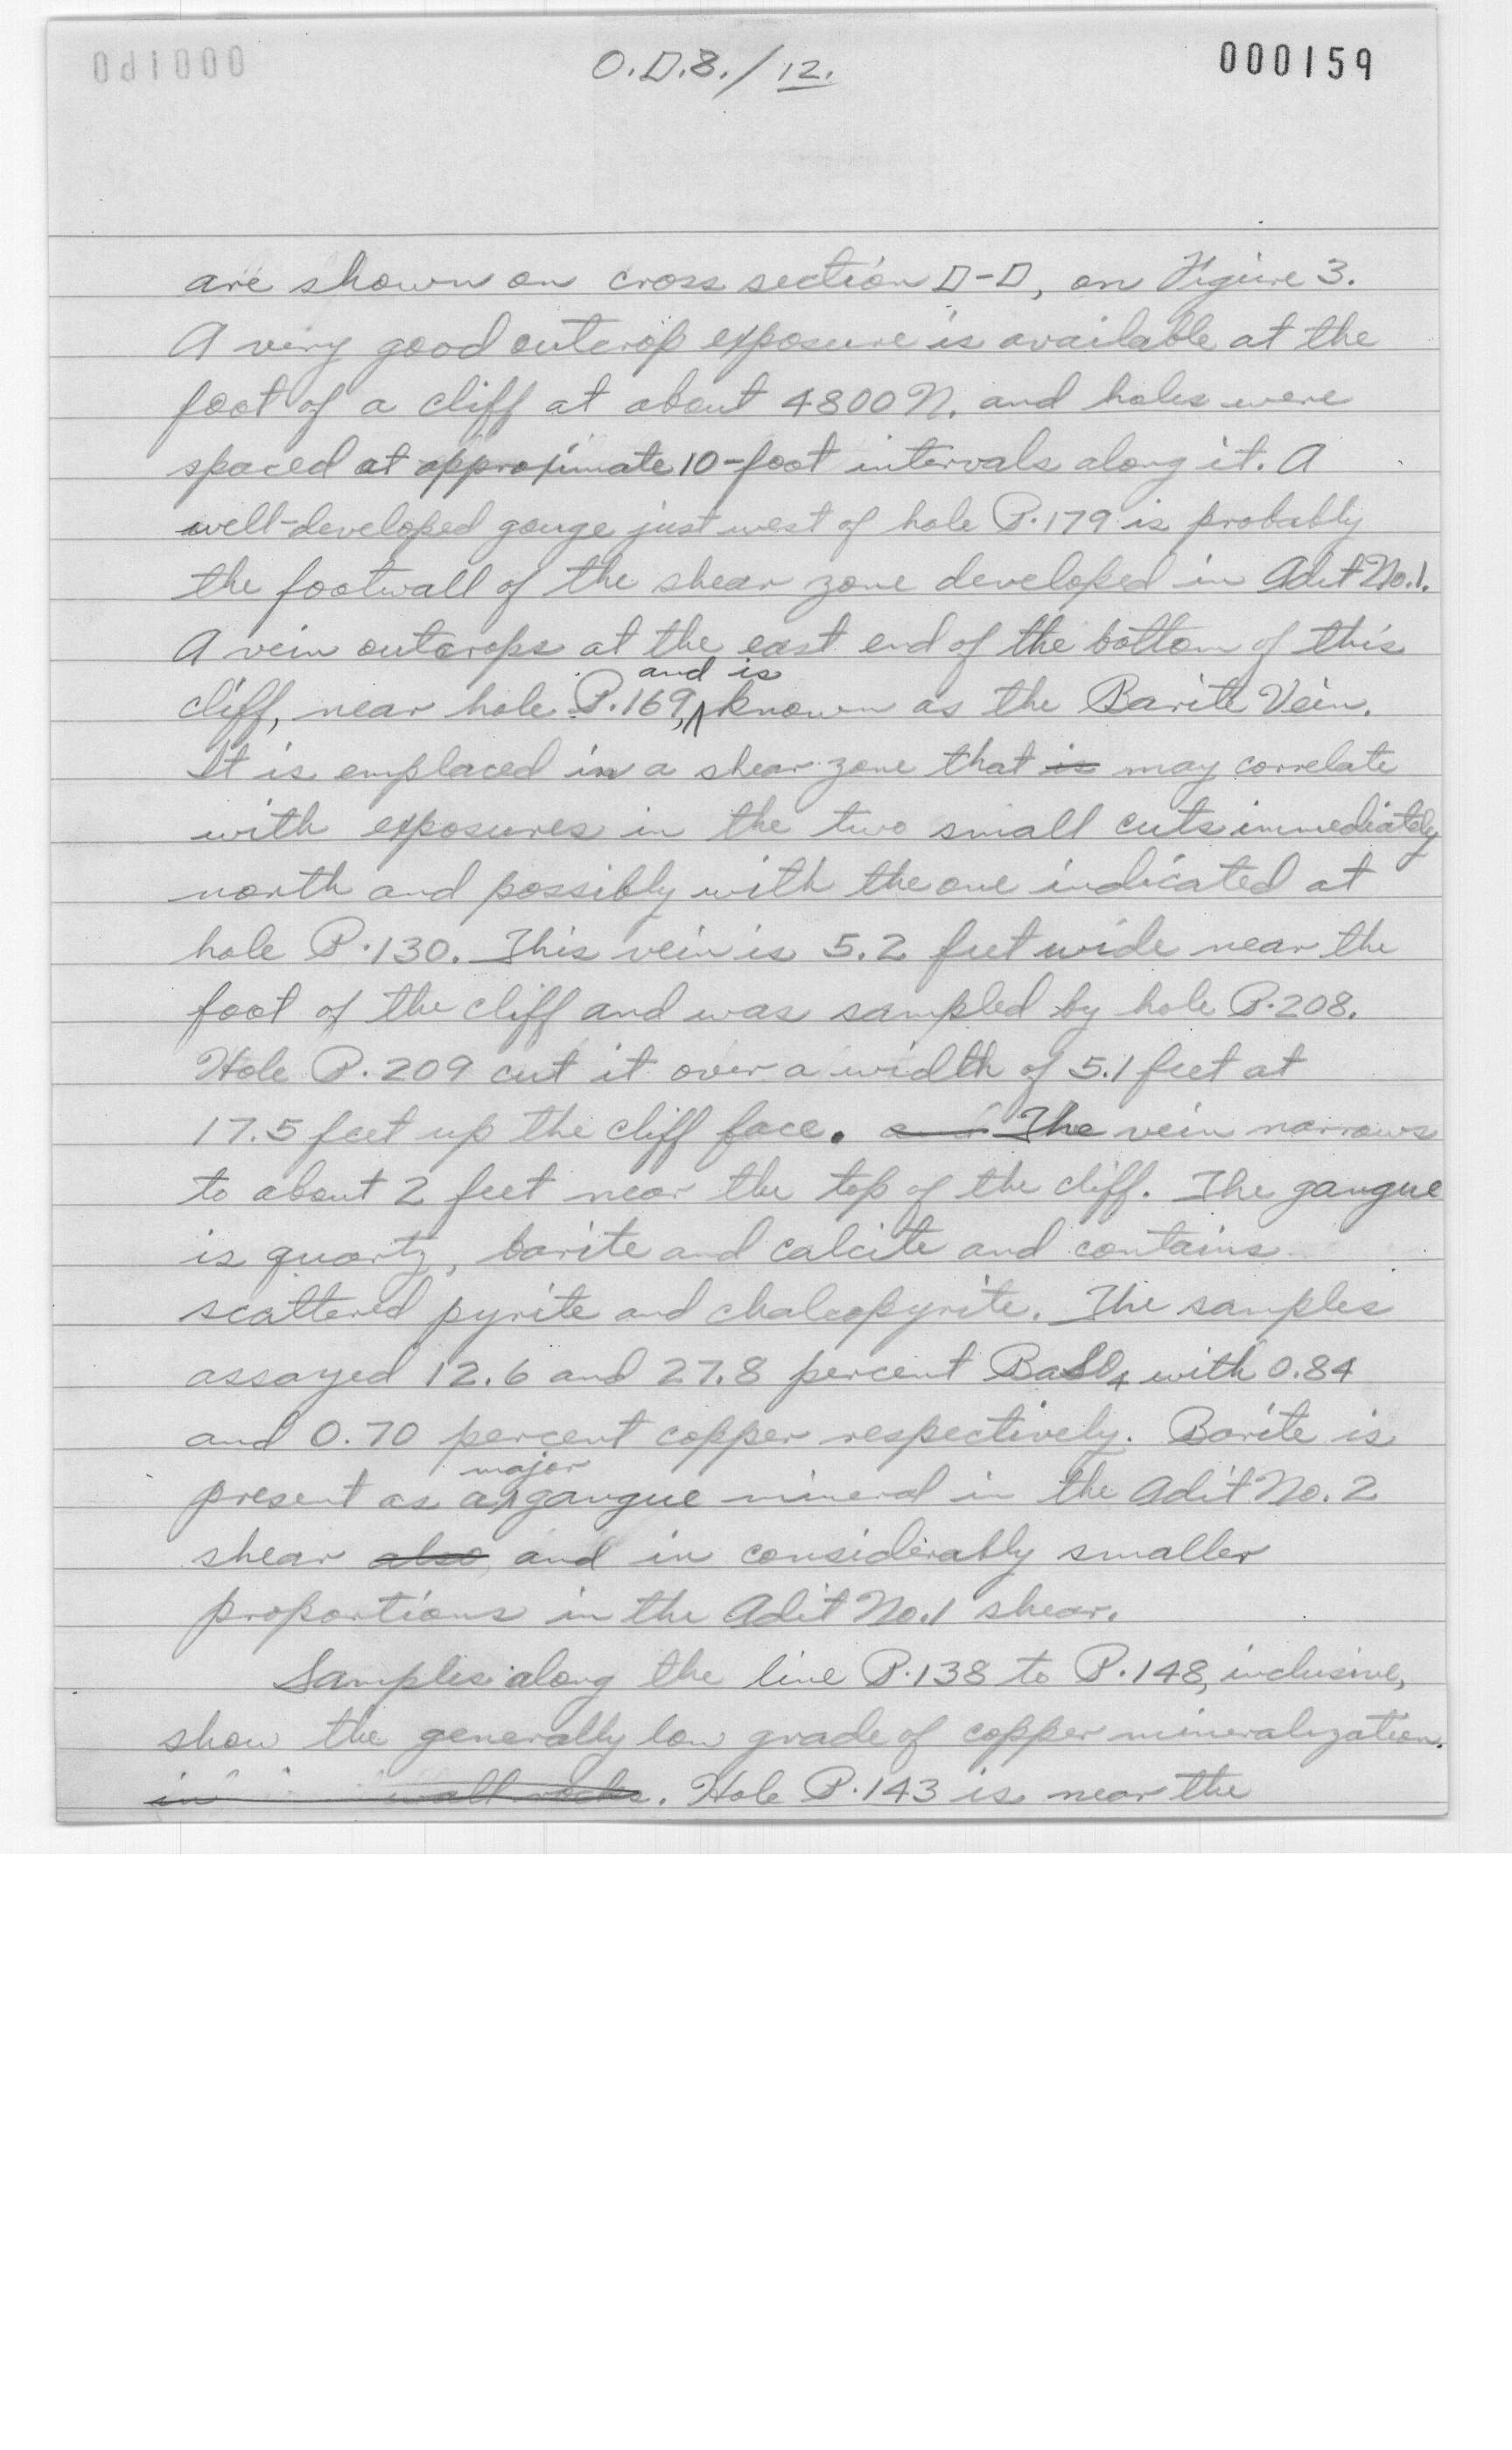 O.D.B./12.
000159
are shown on cross section D-D, on Figure 3.
A very good outcrop exposure is available at the
foot of a cliff at about 4800 N. and holes were
spaced at approximate 10-foot intervals along it. A
well-developed gouge just west of hole P.179 is probably
the footwall of the shear zone developed in Adit No.1.
A vein outcrops at the east end of the bottom of this
and is
cliff, near hole P.169, known as the Barite Vein.
It is emplaced in a shear zone that is may correlate
with exposures in the two small cuts immediately
north and possibly with the one indicated at
hole P.130. This vein is 5.2 feet wide near the
foot of the cliff and was sampled by hole P.208.
Hole P.209 cut it over a width of 5.1 feet at
17.5 feet up the cliff face. The vein narrows
to about 2 feet near the top of the cliff. The gangue
is quartz, barite and calcite and contains
scattered pyrite and chalcopyrite. The samples
assayed 12.6 and 27.8 percent BaSO4 with 0.84
and 0.70 percent copper respectively. Barite is
major
present as a gangue mineral in the Adit No. 2
shear also and in considerably smaller
proportions in the Adit No.1 shear.
Samples along the line P.138 to P.148, inclusive,
show the generally low grade of copper mineralization.
in wall rocks. Hole P.143 is near the